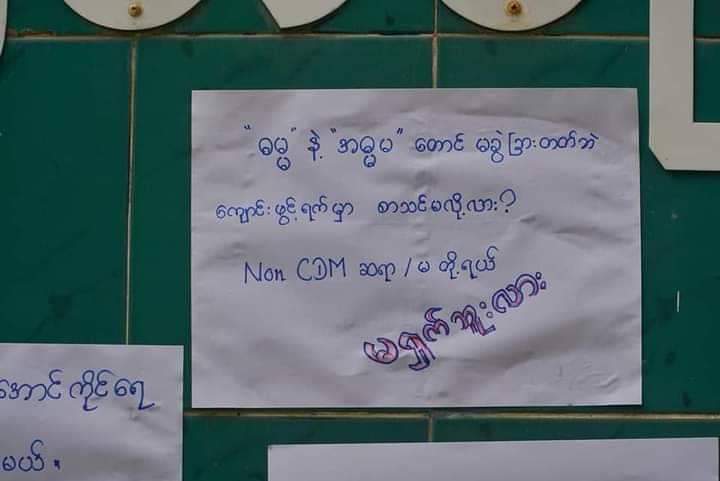 "ဓမ္မ" နဲ့ "အဓမ္မ" တောင် မခွဲခြားတတ်ဘဲ
ကျောင်းဖွင့်ရက်မှာ စာသင်မလို့လား?
Non CDM ဆရာ / မ တို့ရယ်
မရှက်ဘူးလား
အောင်ကိုင်ရေ
မယ်။